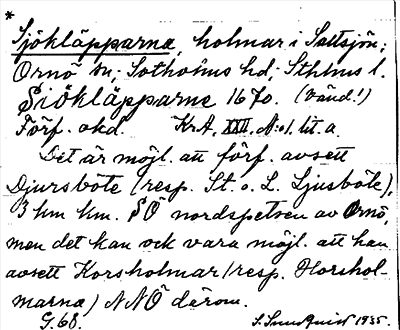 *
Sjökläpparna, holmar i Saltsjön;
Ornö sn; Sotholms hd; Sthlms l.
Siökläpparne 1670. (Vänd!)
Förf. okd. KrA, XXII, No 1. lit. a.
Det är möjl. att förf. avsett
Djursböte (resp. St. o. L. Ljusböte),
3 km km. SÖ nordspetsen av Ornö,
men det kan ock vara möjl. att han
avsett Korsholmar (resp. Horshol-
marna) NNÖ därom.
G. 68. S. Sundquist 1935.